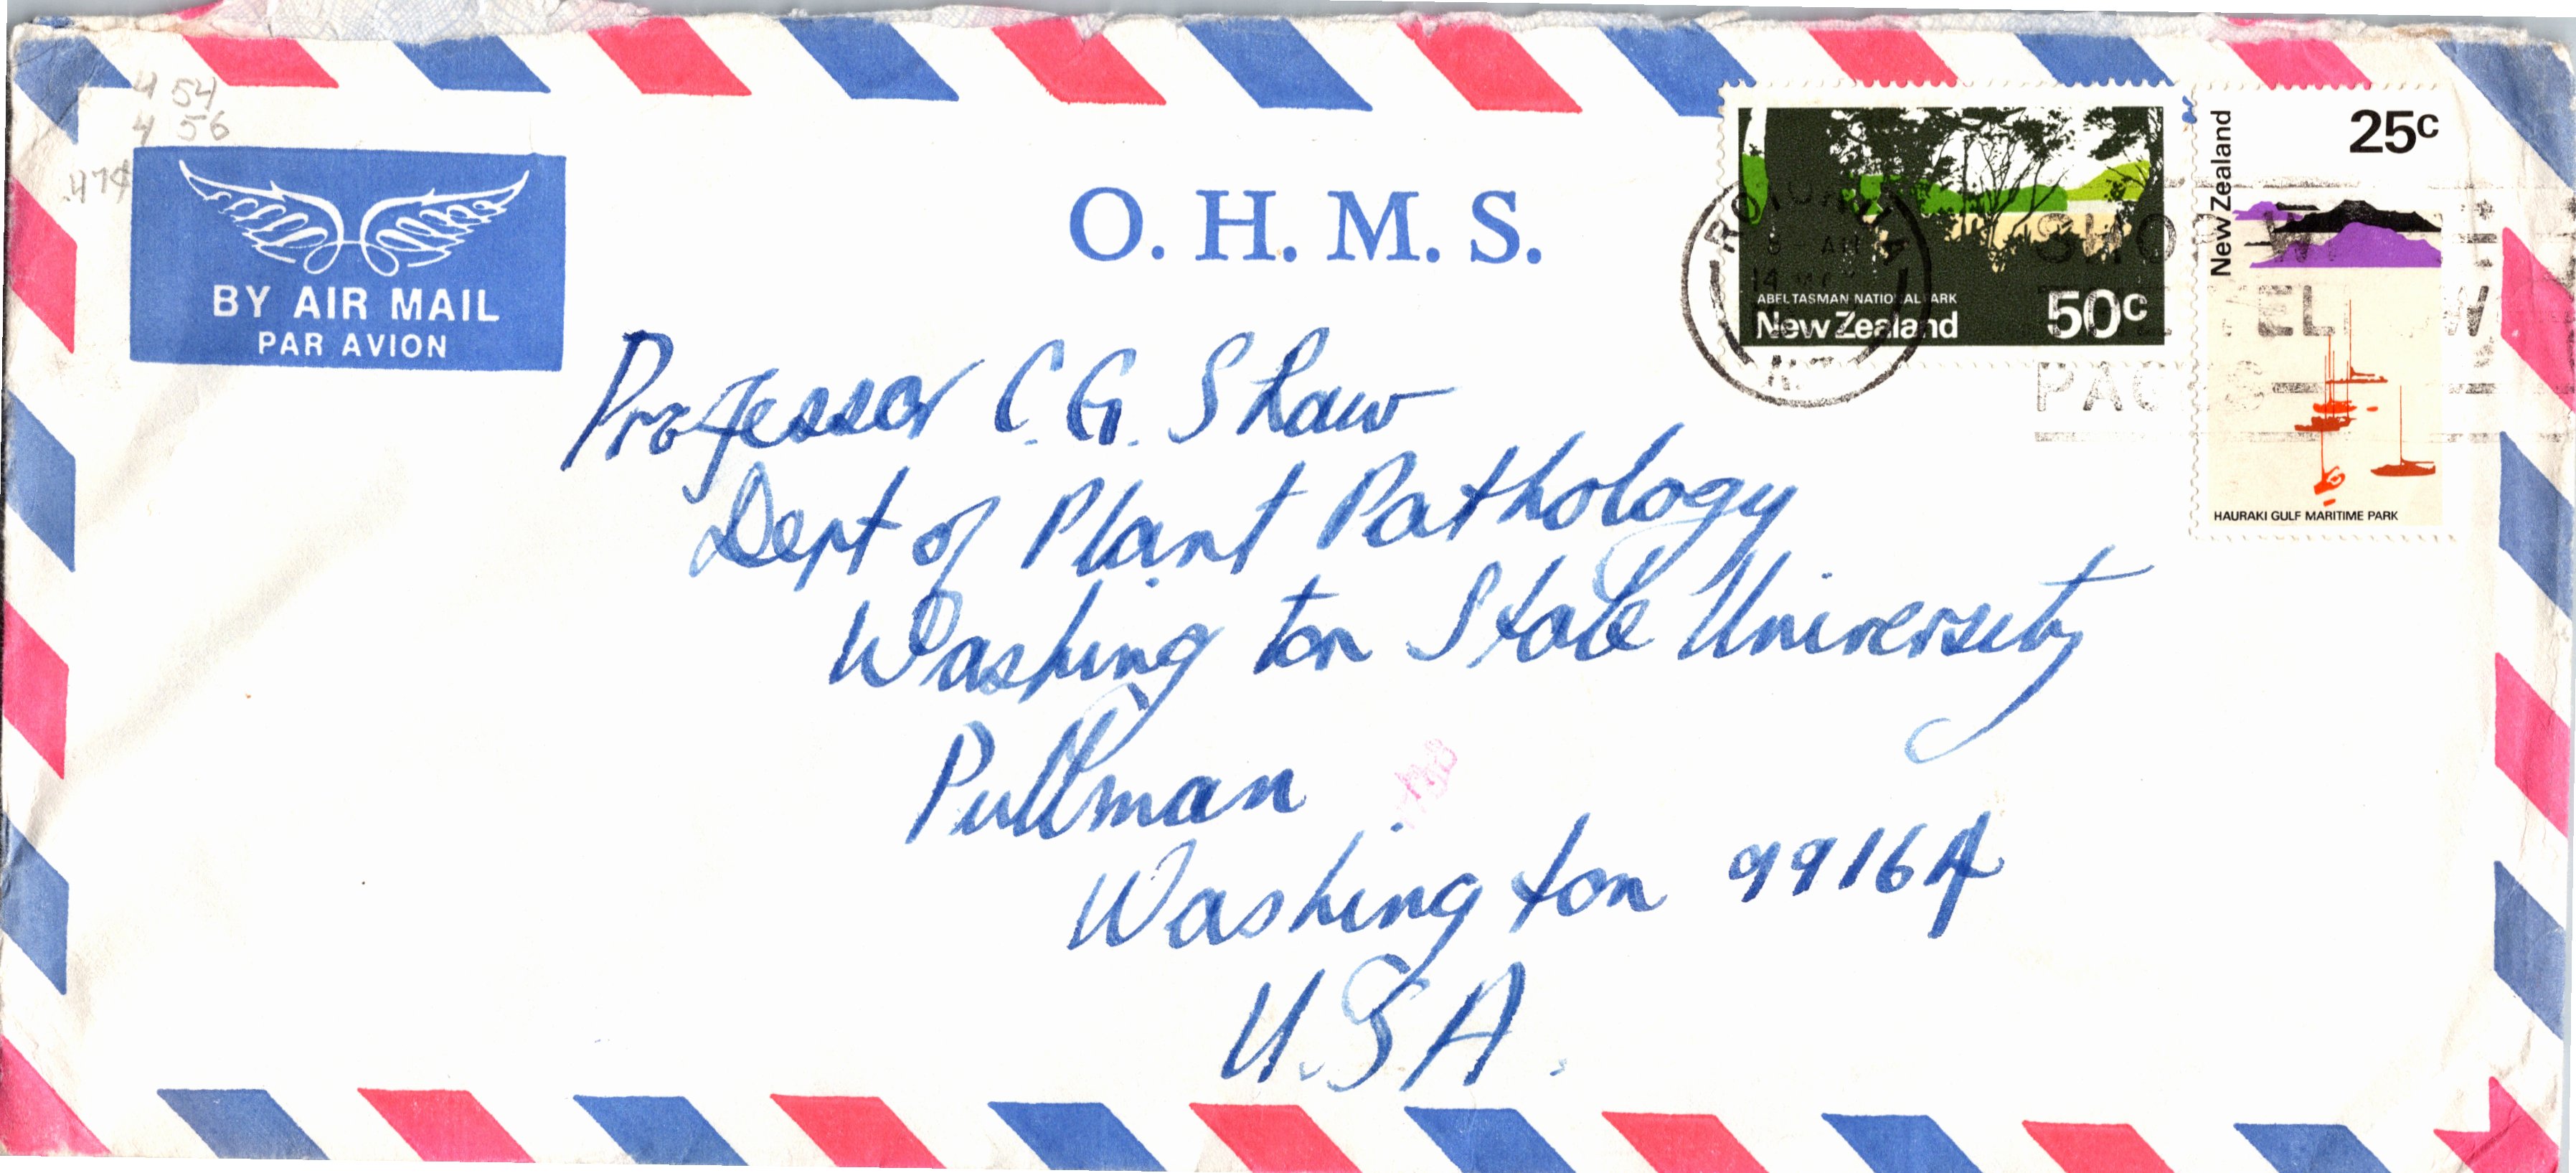 4 54
4 56
.47¢
BY AIR MAIL
PAR AVION
O. H. M. S.
ABEL TASMAN NATIONAL PARK
New Zealand 50c
New Zealand
25c
HAURAKI GULF MARITIME PARK
ROTORUA
8 AM
14
N.Z.
Professor C. G. Shaw
Dept of Plant Pathology
Washington State University
Pullman
Washington 99164
U.S.A.